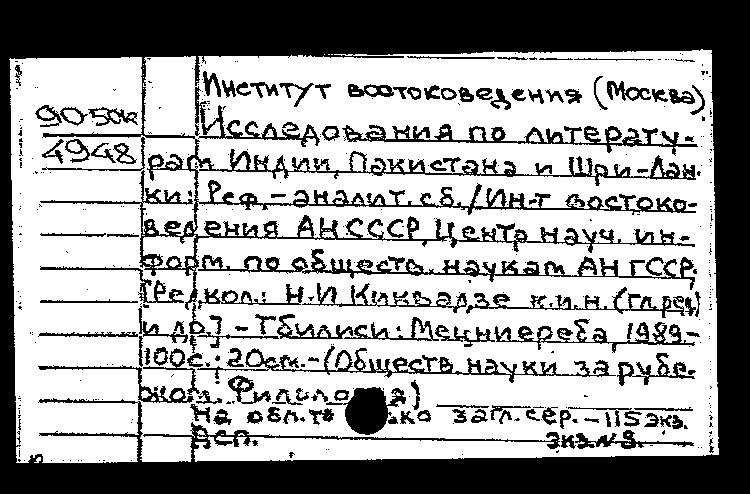 Институт востоковедения (Москва)
90-50к Исследования по литерату-
4948 рам Индии, Пакистана и Шри-Лан-
ки: Реф.-аналит. сб. / Ин-т востоко-
ведения АН СССР, Центр науч. ин-
форм. по обществ. наукам АН ГССР;
[Редкол.: Н.И. Киквадзе к.и.н. (гл. ред.)
и др.]. - Тбилиси: Мецниереба, 1989-
100с.; 20см.-(Обществ. науки за рубе-
жом. Филология)
На обл. только загл. сер. - 115 экз.
ДСП. Экз. N 8.